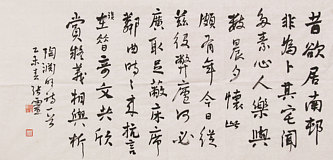 昔欲居南邨
非為卜其宅聞
多素心人樂與
數晨夕懷此
頗有年今日從
茲役弊廬何必
廣取足蔽床席
鄰曲時々来抗言
談在昔奇文共欣
賞疑義相與析
陶淵明詩一首
乙未春